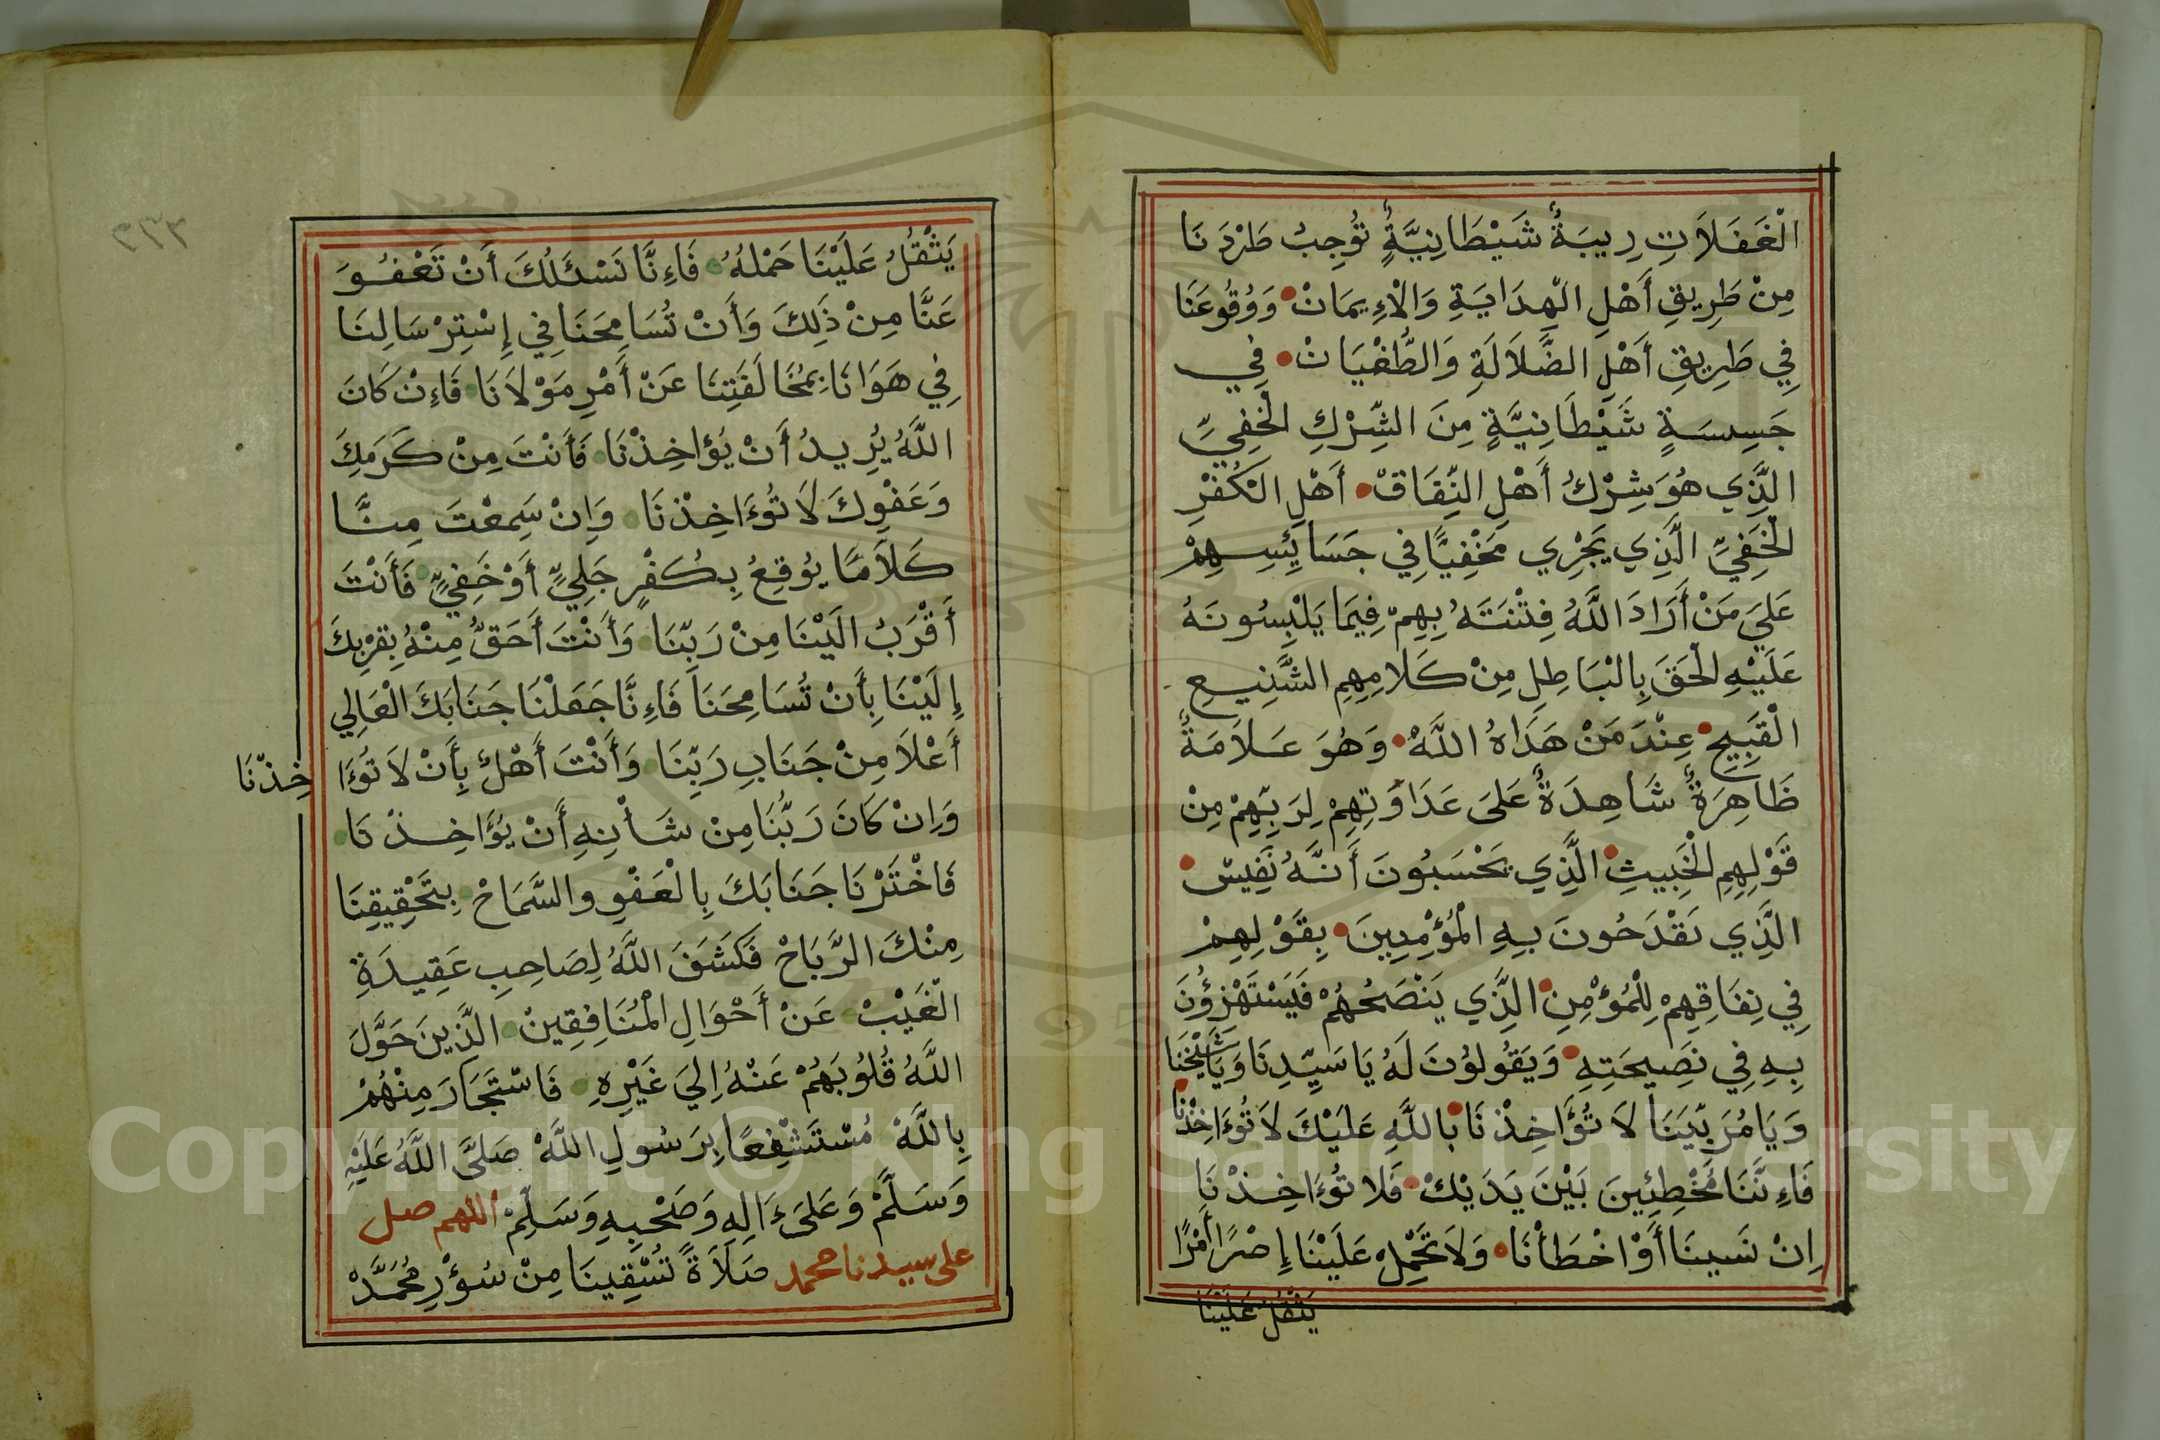 الْغَفَلَاتِ رِيبَةٌ شَيْطَانِيَّةٌ تُوجِبُ طَرْدَنَا
مِنْ طَرِيقِ أَهْلِ الْهِدَايَةِ وَالْإِيمَانْ وَوُقُوعَنَا
فِي طَرِيقِ أَهْلِ الضَّلَالَةِ وَالطُّغْيَانْ فِي
جَسِيسَةٍ شَيْطَانِيَّةٍ مِنَ الشِّرْكِ الْخَفِيِّ
الَّذِي هُوَ شِرْكُ أَهْلِ النِّفَاقْ أَهْلِ الْكُفْرِ
الْخَفِيِّ الَّذِي يَجْرِي مَخْفِيًّا فِي جَسَايِسِهِمْ
عَلَى مَنْ أَرَادَ اللَّهُ فِتْنَتَهُ بِهِمْ فِيمَا يَلْبِسُونَهُ
عَلَيْهِ الْحَقَ بِالْبَاطِلِ مِنْ كَلَامِهِمِ الشَّنِيعِ
الْقَبِيحِ عِنْدَ مَنْ هَدَاهُ اللَّهْ وَهُوَ عَلَامَةٌ
ظَاهِرَةٌ شَاهِدَةٌ عَلَى عَدَاوَتِهِمْ لِرَبِّهِمْ مِنْ
قَوْلِهِمِ الْخَبِيثِ الَّذِي يَحْسَبُونَ أَنَّهُ نَفِيسْ
الَّذِي يَقْدَحُونَ بِهِ الْمُؤْمِنِينَ بِقَوْلِهِمْ
فِي نِفَاقِهِمْ لِلْمُؤْمِنِ الَّذِي يَنْصَحُهُمْ فَيَسْتَهْزِؤُنَ
بِهِ فِي نَصِيحَتِهِ وَيَقُولُونَ لَهُ يَا سَيِّدِنَا وَيَا شَيْخَنَا
وَيَا مُرَبِّيَنَا لَا تُؤَاخِذْنَا بِاللَّهِ عَلَيْكَ لَا تُوءَاخِذْنَا
فَإِنَّنَا مُخْطِئِينَ بَيْنَ يَدَيْكْ فَلَا تُوءَاخِذْنَا
إِنْ نَسِينَا أَوْ اخْطَأْنَا وَلَا تَحْمِلْ عَلَيْنَا إِصْرًا أَمْرًا
يَثْقُلُ عَلَيْنَا
٢٢٣
يَثْقُلُ عَلَيْنَا حَمْلُهُ فَإِنَّا نَسْئَلُكَ أَنْ تَعْفُوَ
عَنَّا مِنْ ذَلِكَ وَأَنْ تُسَامِحَنَا فِي إِسْتِرْسَالِنَا
فِي هَوَانَا بِمُخَالَفَتِنَا عَنْ أَمْرِ مَوْلَانَا فَإِنْ كَانَ
اللَّهُ يُرِيدُ أَنْ يُؤَاخِذْنَا فَأَنْتَ مِنْ كَرَمِكَ
وَعَفْوِكَ لَا تُوءَاخِذْنَا وَإِنْ سَمِعْتَ مِنَّا
كَلَامًا يُوقِعُ بِكُفْرٍ جَلِيٍّ أَوْ خَفِيٍّ فَأَنْتَ
أَقْرَبُ الَيْنَا مِنْ رَبِّنَا وَأَنْتَ أَحَقُّ مِنْهُ بِقُرْبِكَ
إِلَيْنَا بِأَنْ تُسَامِحَنَا فَإِنَّا جَعَلْنَا جَنَابَكَ الْعَالِي
أَعْلَا مِنْ جَنَابِ رَبِّنَا وَأَنْتَ أَهْلٌ بِأَنْ لَا تُوءَا خِذْنَا
وَإِنْ كَانَ رَبُّنَا مِنْ شَأْنِهِ أَنْ يُؤَاخِذْنَا
فَاخْتَرْنَا جَنَابَكَ بِالْعَفْوِ والسَّمَاحْ بِتَحْقِيقِنَا
مِنْكَ الرَّبَاحْ فَكَشَفَ اللَّهُ لِصَاحِبِ عَقِيدَةِ
الْغَيْبْ عَنْ أَحْوَالِ الْمُنَافِقِينْ الَّذِينَ حَوَّلَ
اللَّهُ قُلُوبَهُمْ عَنْهُ اِلَيَ غَيْرِهِ فَاسْتَجَارَ مِنْهُمْ
بِاللَّهْ مُسْتَشْفِعًا بِرَسُولِ اللَّهْ صَلَّى اللَّهُ عَلَيْهِ
وَسَلَّمْ وَعَلَى ءَالِهِ وَصَحْبِهِ وَسَلِّمْ اللهم صل
على سيدنا محمد صَلَاةً تُسْقِينَا مِنْ سُؤْرِ مُحَمَّدْ
Copyright © King Saud University